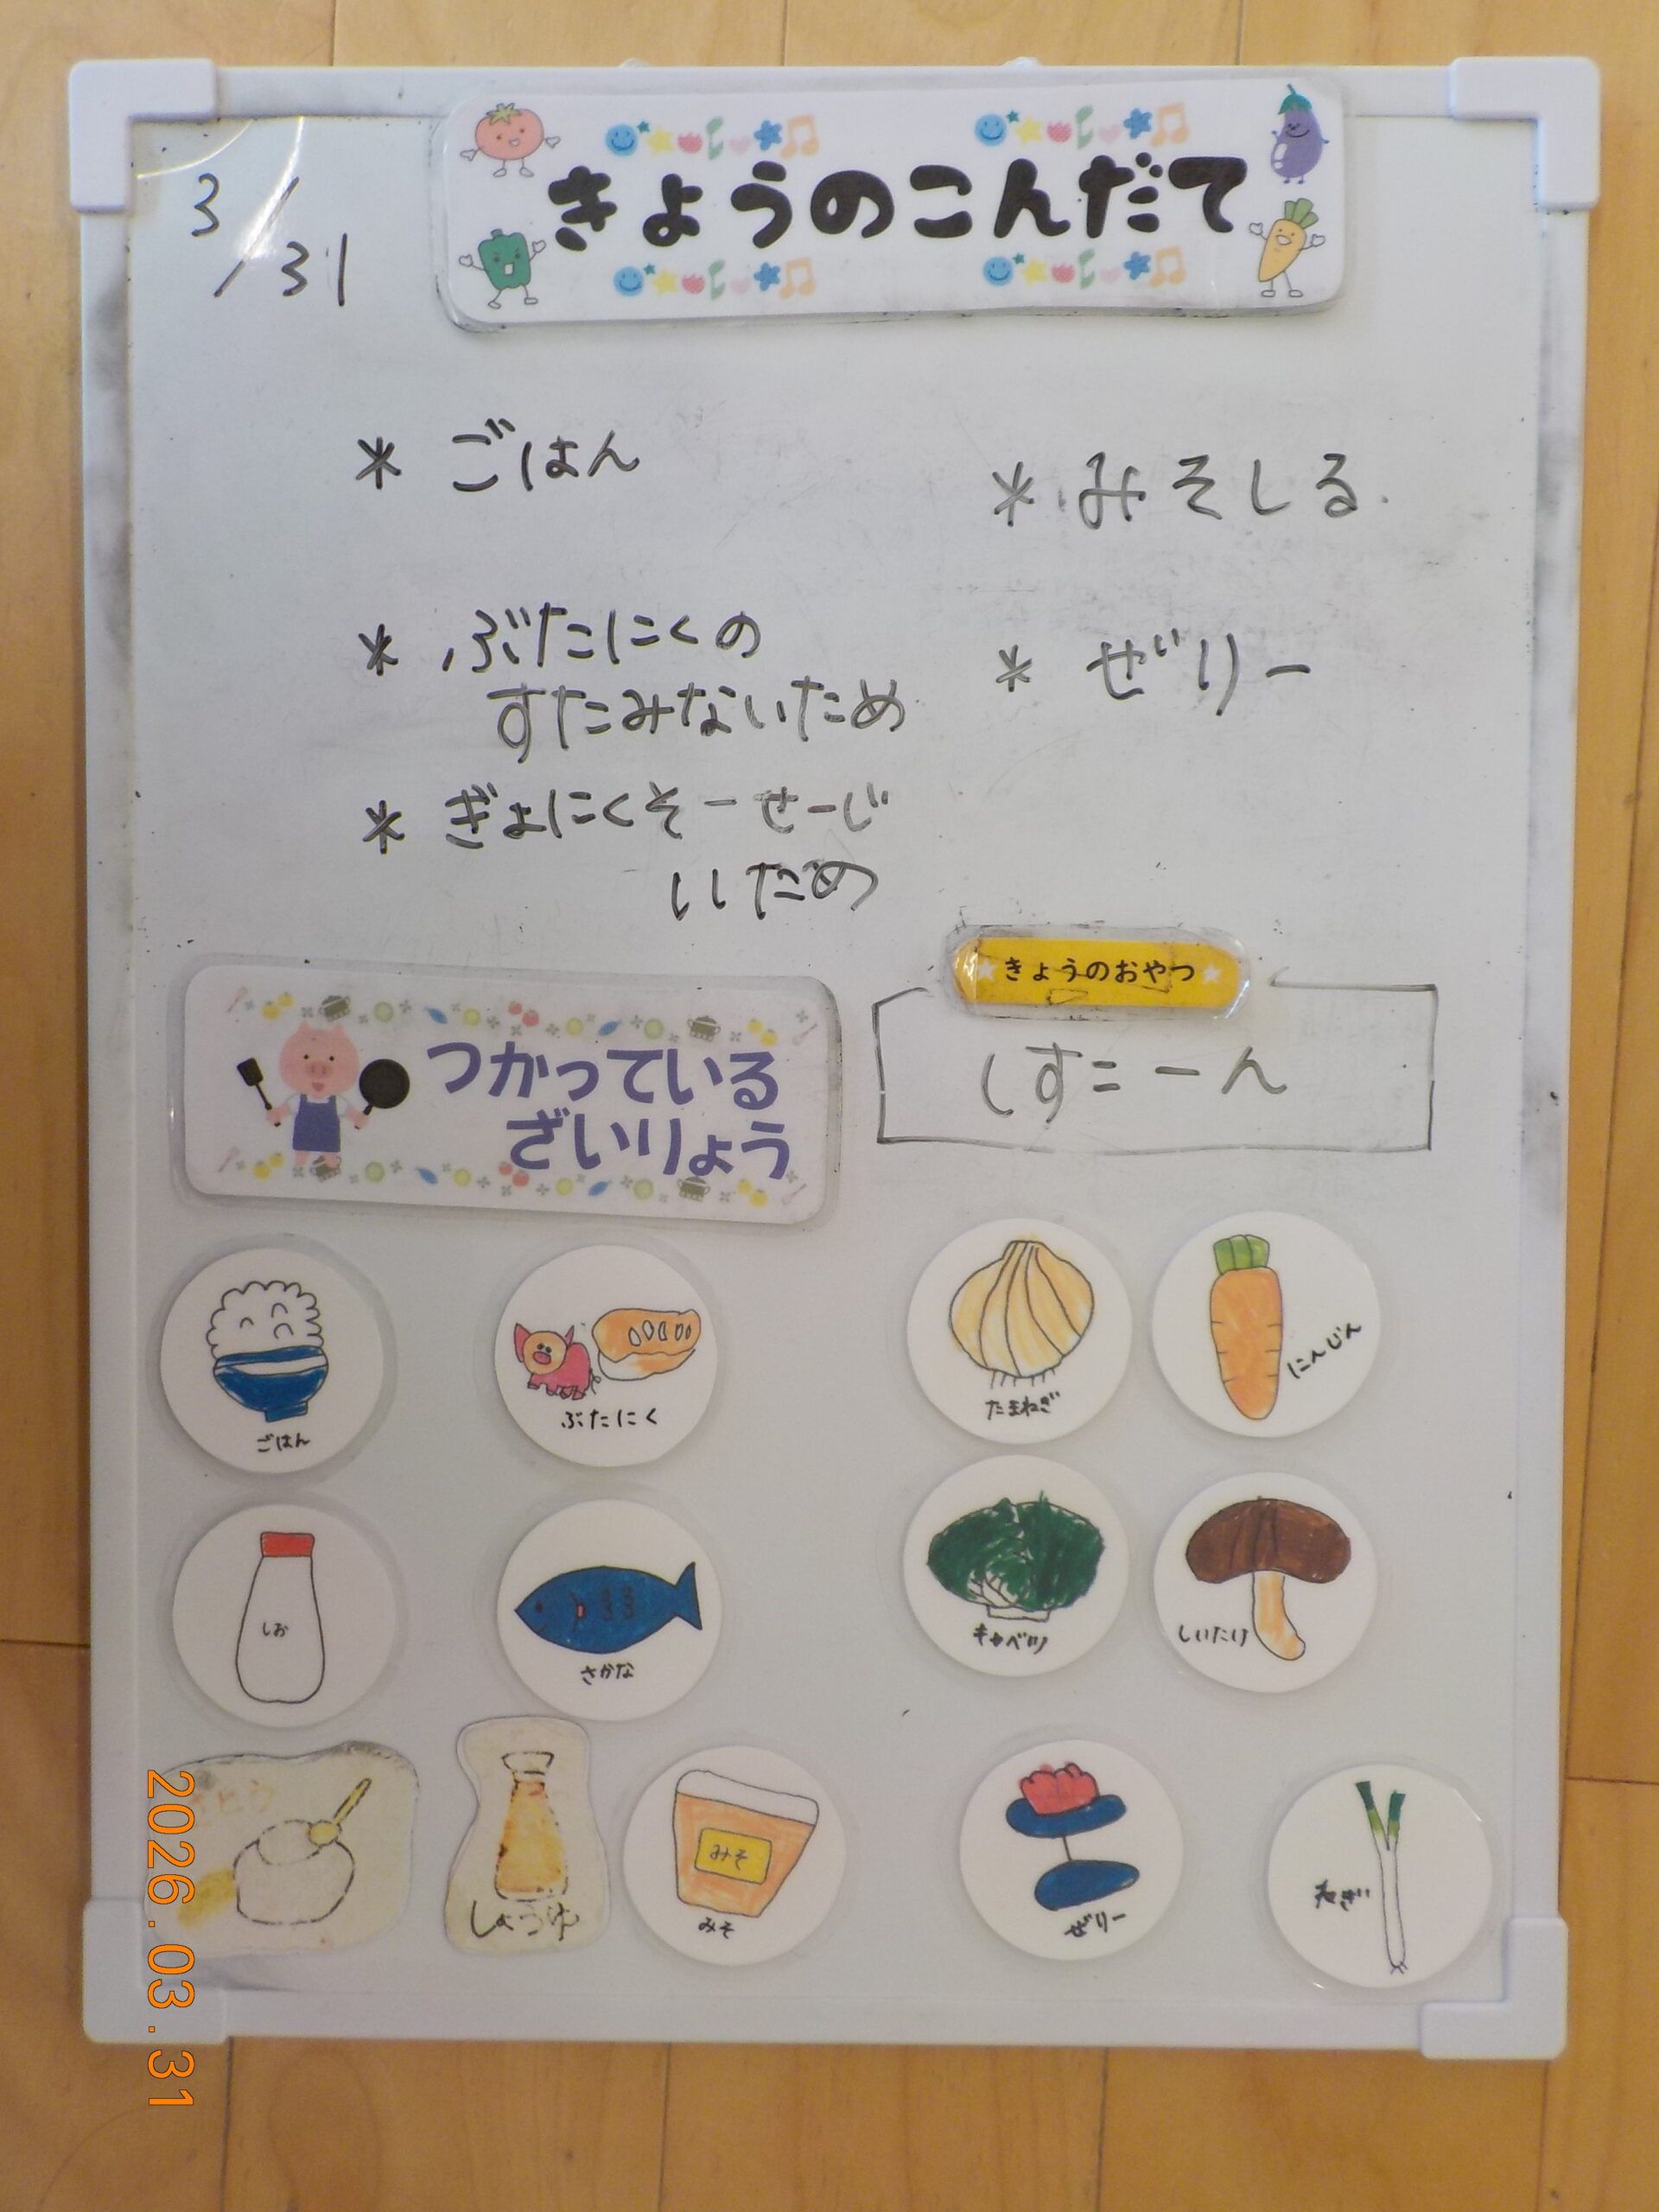 3/31
きょうのこんだて
* ごはん
* ぶたにくの
すたみないため
* ぎょにくそーせーじ
いため
* みそしる
* ぜりー
きょうのおやつ
しすこーん
つかっている
ざいりょう
ごはん
ぶたにく
たまねぎ
にんじん
しお
さかな
キャベツ
しいたけ
しょうゆ
みそ
みそ
ぜりー
ねぎ
2026.03.31